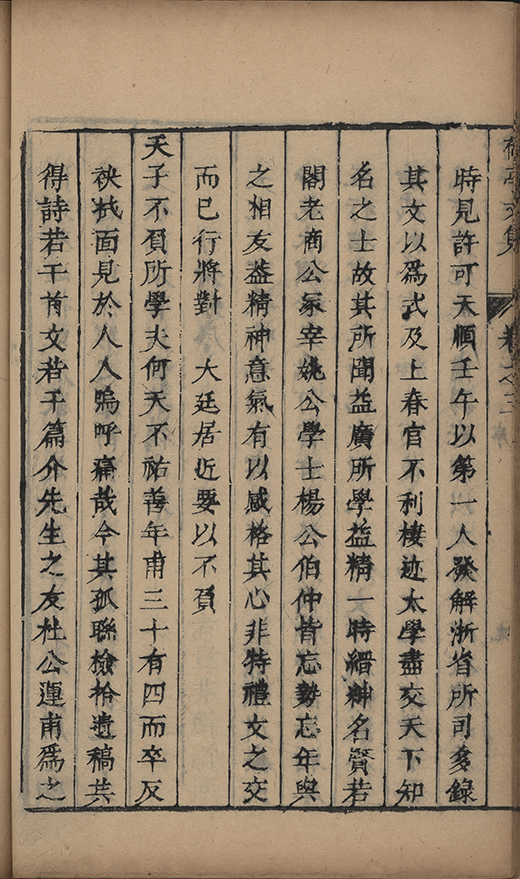 卷之三
時見許可天順壬午以第一人發解浙省所司多錄
其文以爲式及上春官不利棲迹太學盡交天下知
名之士故其所聞益廣所學益精一時縉紳名賢若
閣老商公冢宰姚公學士楊公伯仲皆忘勢忘年與
之相友葢精神意氣有以感格其心非特禮文之交
而已行將對　大廷居近要以不負
天子不負所學夫何天不祐善年甫三十有四而卒反
袂拭面見於人人嗚呼痛哉今其孤聯檢拾遺稿共
得詩若干首文若干篇介先生之友杜公運甫爲之